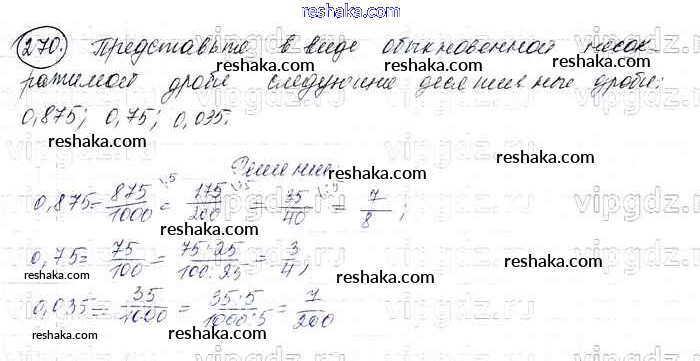 reshaka.com
270. Представьте в виде обыкновенной несок-
ратимой дроби следующие десятичные дроби:
0,875; 0,75; 0,035.
reshaka.com reshaka.com reshaka.com
vipgdz.com
Решение:
0,875 = 875/1000 = 175/200 = 35/40 = 7/8;
reshaka.com
0,75 = 75/100 = 75:25/100:25 = 3/4;
reshaka.com reshaka.com reshaka.com
0,035 = 35/1000 = 35:5/1000:5 = 7/200
reshaka.com